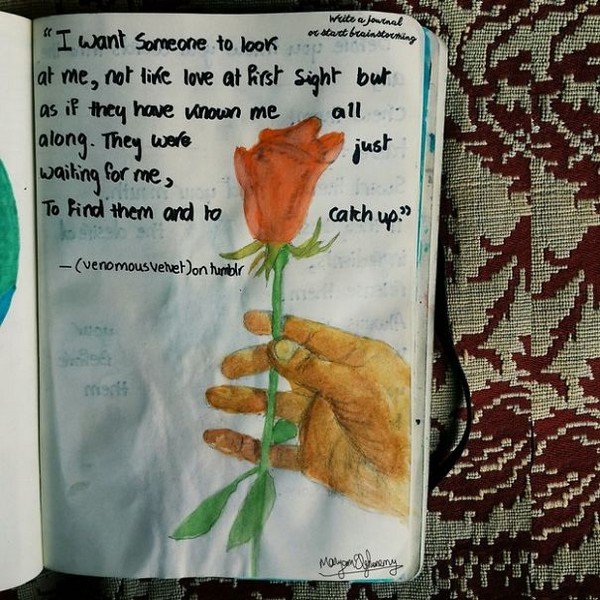 Write a journal
or start brainstorming
"I want Someone to look
at me, not like love at first sight but
as if they have known me all
along. They were just
waiting for me,
To find them and to catch up."
— (venomousvelvet) on tumblr
your
Before
them